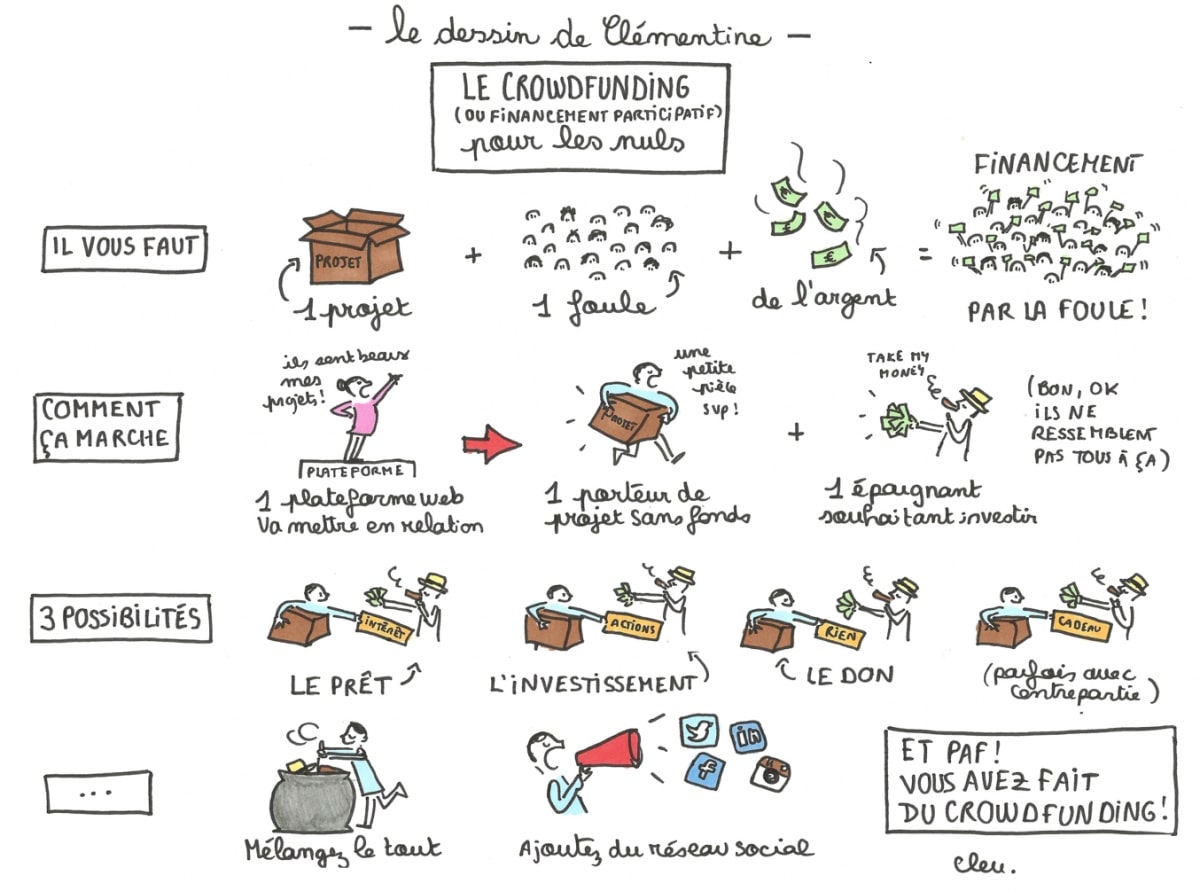 — le dessin de Clémentine —
LE CROWDFUNDING
(OU FINANCEMENT PARTICIPATIF)
pour les nuls
IL VOUS FAUT
PROJET
1 projet
+
1 foule
+
€
€
€
€
de l'argent
=
FINANCEMENT
PAR LA FOULE !
COMMENT
ÇA MARCHE
ils sont beaux
mes
projets !
PLATEFORME
1 plateforme web
va mettre en relation
PROJET
une
petite
pièce
svp !
1 porteur de
projet sans fonds
+
TAKE MY
MONEY
1 épargnant
souhaitant investir
(BON, OK
ILS NE
RESSEMBLENT
PAS TOUS À ÇA)
3 POSSIBILITÉS
INTÉRÊT
LE PRÊT
ACTIONS
L'INVESTISSEMENT
RIEN
LE DON
CADEAU
(parfois avec
contrepartie)
...
Mélangez le tout
in
f
Ajoutez du réseau social
ET PAF !
VOUS AVEZ FAIT
DU CROWDFUNDING !
Cleu.